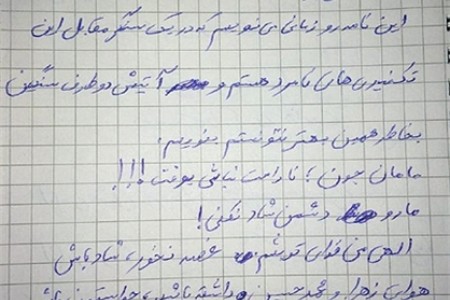 این نامه رو زمانی می نویسم که در یک سنگر مقابل این
تکفیری های نامرد هستم و آتیش دو طرف سنگین
بخاطر همین بهتر نتونستم بنویسم.
مامان جون؛ ناراحت نباشی یوقت!!!
مارو دشمن شاد نکنی!
الهی من فدای تو بشم غصه نخور، شاد باش
هوای زهرا و محمد حسین و داشته باش،